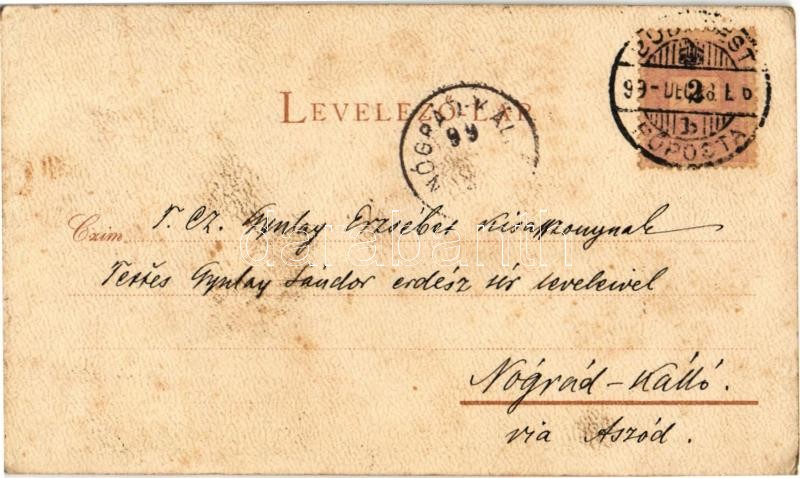 BUDAPEST
99-DEC. 23. E 6
FŐPOSTA
2
LEVELEZŐ-LAP
NÓGRÁD-KÁL
99
Czim
T. Cz. Gyulay Erzsébet kisasszonynak
Gyulay Sándor erdész úr leveleivel
Nógrád-Kálló.
via Aszód.
darabanth